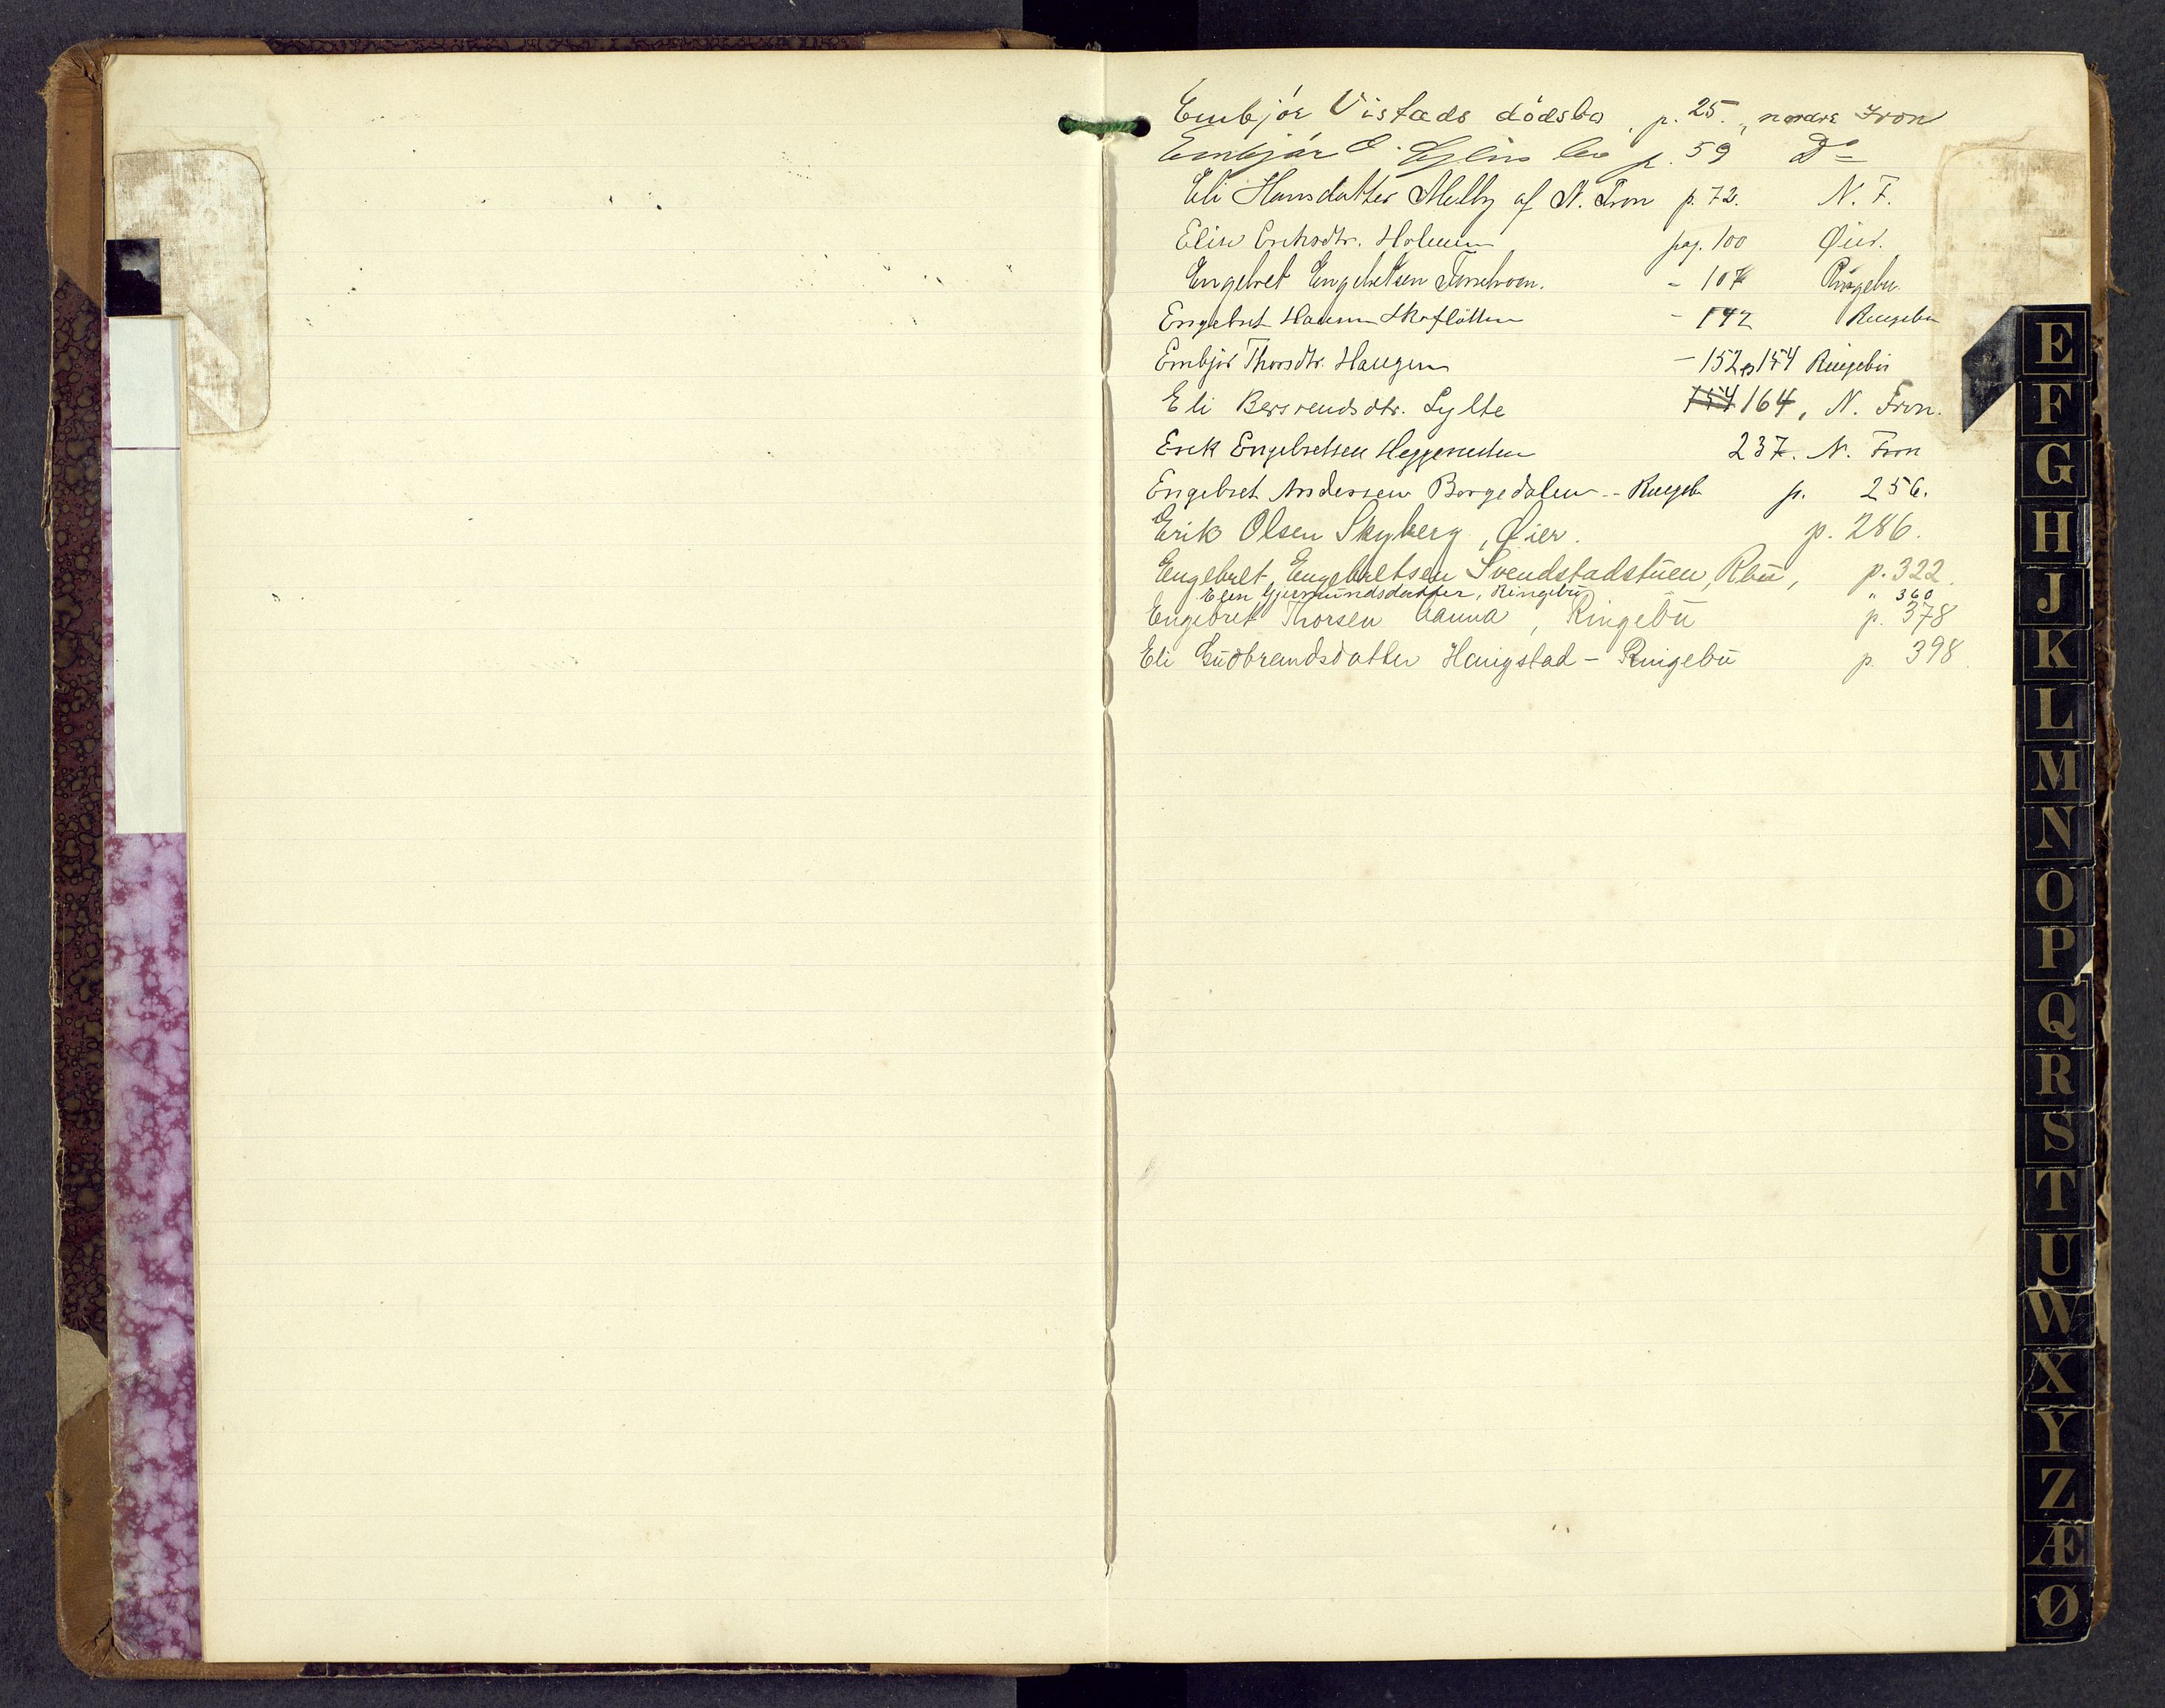 Embjör Vistads dödsbo, p. 25., nordre Fron
Embjör O. bo p. 59 Do
Eli Hansdatter Melby af N. Fron p. 72. N. F.
Elise Eriksdtr. Holmen pag. 100 Øier.
Engebret Engebretsen - 107 Ringebu.
Engebret Hansen Skaflötten - 142 Ringebu
Embjör Thorsdtr. Haugen - 152 154 Ringebu
Eli Bersvendsdtr. Sylte 154 164, N. Fron.
Erik Engebretsen 237. N. Fron
Engebret Andersen Borgedalen - Ringebu p. 256.
Erik Olsen Skyberg, Øier. p. 286.
Engebret Engebretsen Svendstadstuen, Rbu, p. 322.
Elen Gjermundsdatter, Ringebu " 360
Engebret Thorsen Aanna, Ringebu p. 378
Eli Gudbrandsdatter Haugstad - Ringebu p. 398.
E
F
G
H
J
K
L
M
N
O
P
Q
R
S
T
U
W
X
Y
Z
Æ
Ø